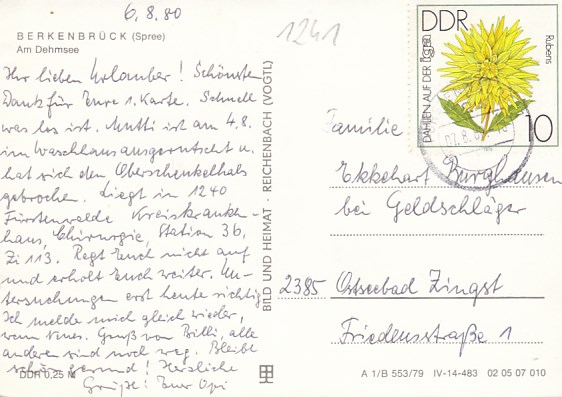 6.8.80
1241
BERKENBRÜCK (Spree)
Am Dehmsee
Ihr lieben Urlauber! Schönsten
Dank für Eure 1. Karte. Schnell
was los ist. Mutti ist am 4.8.
im Waschhaus ausgerutscht u.
hat sich den Oberschenkelhals
gebrochen. Liegt in 1240
Fürstenwalde Kreiskranken-
haus, Chirurgie, Station 36,
Zi 113. Regt Euch nicht auf
und erholt Euch weiter. Un-
tersuchungen erst heute richtig
Ich melde mich gleich wieder,
wenn Neues. Gruß von Billi, alle
anderen sind noch weg. Bleibt
schön gesund! Herzliche
Grüße: Euer Opi
DDR 0,25 M
BILD UND HEIMAT · REICHENBACH (VOGTL)
DDR
DAHLIEN AUF DER
Rubens
10
Familie
Ekkehart Burghausen
bei Geldschläger
2385 Ostseebad Zingst
Friedensstraße 1
A 1/B 553/79 IV-14-483 02 05 07 010